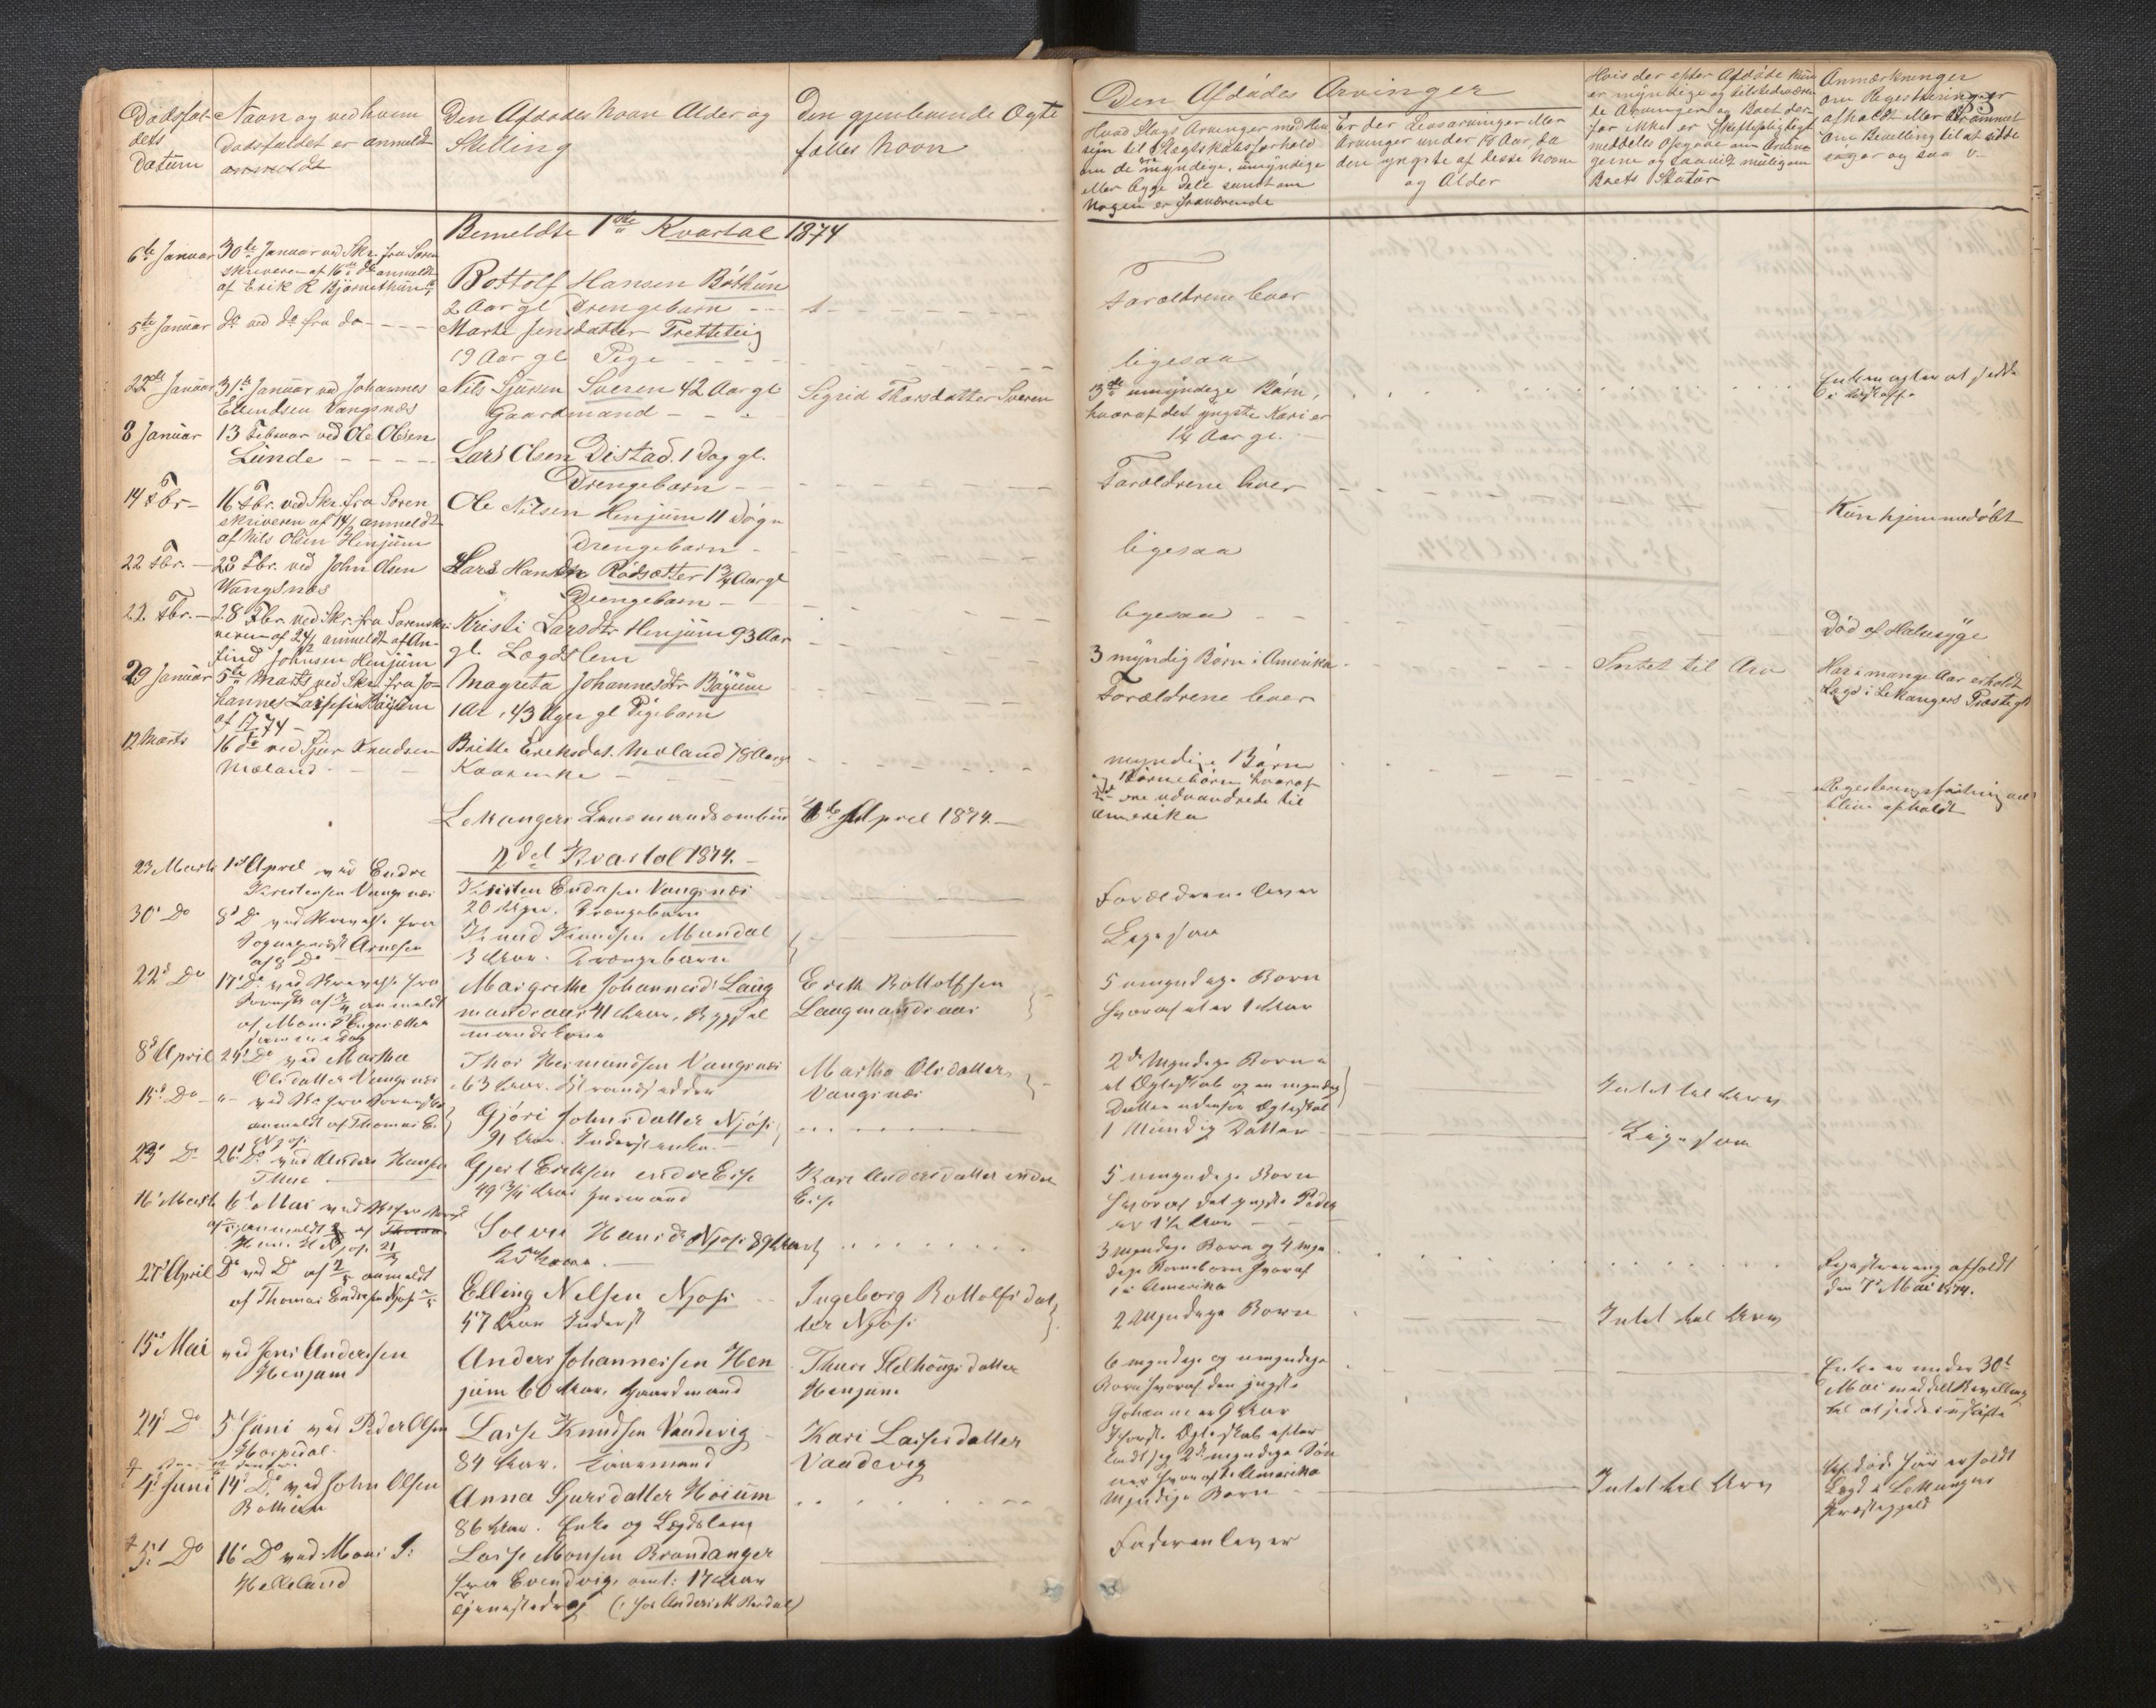 Dødsfal-
dets
Datum
Navn og ved hvem
Dødsfaldet er anmeldt
anmeldt
Den Afdødes Navn Alder og
Stilling
Den gjenlevende Ægte
fælles Navn
Den Afdødes Arvinger
Hvad Slags Arvinger med Hen
syn til Slægtskabsforhold
om de ere myndige, umyndige
eller begge Dele samt om
Nogen er fraværende
Er der Livsarvinger eller
Arvinger under 18 Aar, da
den yngste af disse Navn
og Alder
Hvis der efter Afdøde kun
er myndige og tilstedeværen
de Arvinger og Boet der
for ikke er Skiftepligtigt
meddeles Opgave om Arvin
gerne og saavidt muligt om
Boets Status
Anmærkninger
om Registrering er
afholdt eller berammet
om Bevilling til at sidde
83
Bemeldte 1ste Kvartal 1874
6te Januar
30te Januar ved Skr. fra Soren
skriveren af 16de ds anmeldt
af Erik R Bjørnethun
Bottolf Hansen Bøthun
2 Aar gl Drengebarn
Forældrene lever
5te Januar
do ved do fra do
Marte Jensdatter Tretteteig
19 Aar gl Pige
ligesaa
22de Januar
31te Januar ved Johannes
Ellendsen Vangsnæs
Nils Sjursen Sværen 42 Aar gl
Gaardmand
Sigrid Thorsdatter Sværen
13de umyndige Børn,
hvoraf det yngste Kari er
1¼ Aar gl.
Enken agter at sidde
i uskifte
8 Januar
13 Februar ved Ole Olsen
Lunde
Lars Olsen Distad. 1 Dag gl.
Drengebarn
Forældrene lever
14 Fbr
16 Fbr. ved Skr. fra Soren
skriveren af 14/2 anmeldt
af Nils Olsen Henjum
Ole Nilsen Henjum 11 Døgn
Drengebarn
ligesaa
Kun hjemmedøbt
22 Fbr.
28 Fbr. ved John Olsen
Wangsnæs
Lars Hansen Rødsætter 1¾ Aar gl
Drengebarn
ligesaa
Død af Halssyge
22. Fbr.
28 Fbr. ved Skr. fra Sorenskri
veren af 24/2 anmeldt af An-
find Johnsen Henjum
Kristi Larsdtr Henjum 93 Aar
gl. Lægdslem
3 myndig Børn i Amerika
Intet til Arv
Har i mange Aar erholdt
Lægd i Lekangers Præstegj
29 Januar
5te Marts ved Skr. fra Jo-
hannes Larssen Bøyum
af 17/1 74
Magreta Johannesdtr Bøyum
1 Ar, 43 Uger gl Pigebarn
Forældrene lever
12 Marts
16 do ved Sjur Knudsen
Mæland
Britte Eriksdat. Mæland 78 Aar gl
Kaarenke
myndige Børn
og Børnebørn hvoraf
ere udvandrede til
Amerika
Registeringsforretning
blive afholdt
Lekangers Lensmandsombud 4de April 1874.
2det Kvartal 1874.
23 Marts
1st April ved Endre
Kristensen Vangsnæs
Kristen Endresen Vangsnæs
20 Uger. Drængebarn
Forældrene lever
30te Do
8d Do ved Skrivelse fra
Sogneprest Arnesen
af 8 Do
Knud Knudsen Mundal
3 Aar. Drængebarn
Ligesaa
22d Do
17de Do ved Skrivelse fra
Sorenskr af 3/4 anmeldt
af Mons Engesætter
samme Dag
Margrethe Johannesd Laug
mandsaas 41 Aar, Bygsel
mandskone
Erik Bottolfsen
Laugmandsaas
5 umyndige Børn
hvoraf et er 1 Aar
8d April
24de Do ved Martha
Olsdatter Vangsnæs
Thor Hermundsen Vangsnæs
63 Aar. Strandsidder
Martha Olsdatter
Vangsnæs
2de Myndige Børn
et Ægteskab og en myndig
Datter udenfor Ægteskab
Intet til Arv
15d Do
ved Skr fra Sorenskr
anmeldt af Thomas E.
Njøs
Gjøri Johnsdatter Njøs
91 Aar. Inderstenke
1 Mündig Datter
Ligesaa
23d Do
26de Do ved Anders Hansen
Thue
Gjert Eriksen indre Eise
49¾ Aar Husmand
Kari Andersdatter indre
Eise
5 umyndige Børn
hvoraf det yngste Peder
er 1½ Aar
16de Marts
6d Mai ved Skr fra
anmeldt af
Njøs
Solvei Hansdr Njøs 89 Aar
Kaarkone
3 Myndige Børn og 4 myn
dige Børnebørn hvoraf
1 i Amerika
Registrering afholdt
den 7de Mai 1874.
27de April
Do ved Do af 2/5 anmeldt
af Thomas Endresen Njøs
Elling Nilsen Njøs
57 Aar Inderst
Ingeborg Bottolfsdat
ter Njøs
2 Myndige Børn
Intet til Arv
15d Mai
ved Jens Andersen
Henjum
Anders Johannessen Hen
jum 60 Aar. Gaardmand
Thuri Stelhougsdatter
Henjum
6 myndige og umyndige
Børn hvoraf den yngste
Johanne er 9 Aar
Enken er under 30d
Mai meddelt Bevilling
til at sidde i uskifte
24d Do
5d Juni ved Peder Olsen
Hospital
Lasse Knudsen Vandevig
84 Aar. Kaarmand
Kari Lassesdatter
Vandevig
I første Ægteskab efter
ladt sig 2de myndige Søn
ner hvoraf 1 i Amerika
4d Juni
14de Do ved John Olsen
Bothun
Anna Sjursdatter Høium
86 Aar. Enke og Lægdslem
Myndige Børn
Intet til Arv
Afdøde har erholdt
Lægd i Lekangers
Præstegjeld
5d Do
16de Do ved Mons J:
Helleland
Lasse Monsen Brandanger
fra Evendvigs omt: 17 Aar
Tjenestedreng (: hos Anders K Rendal)
Faderen lever